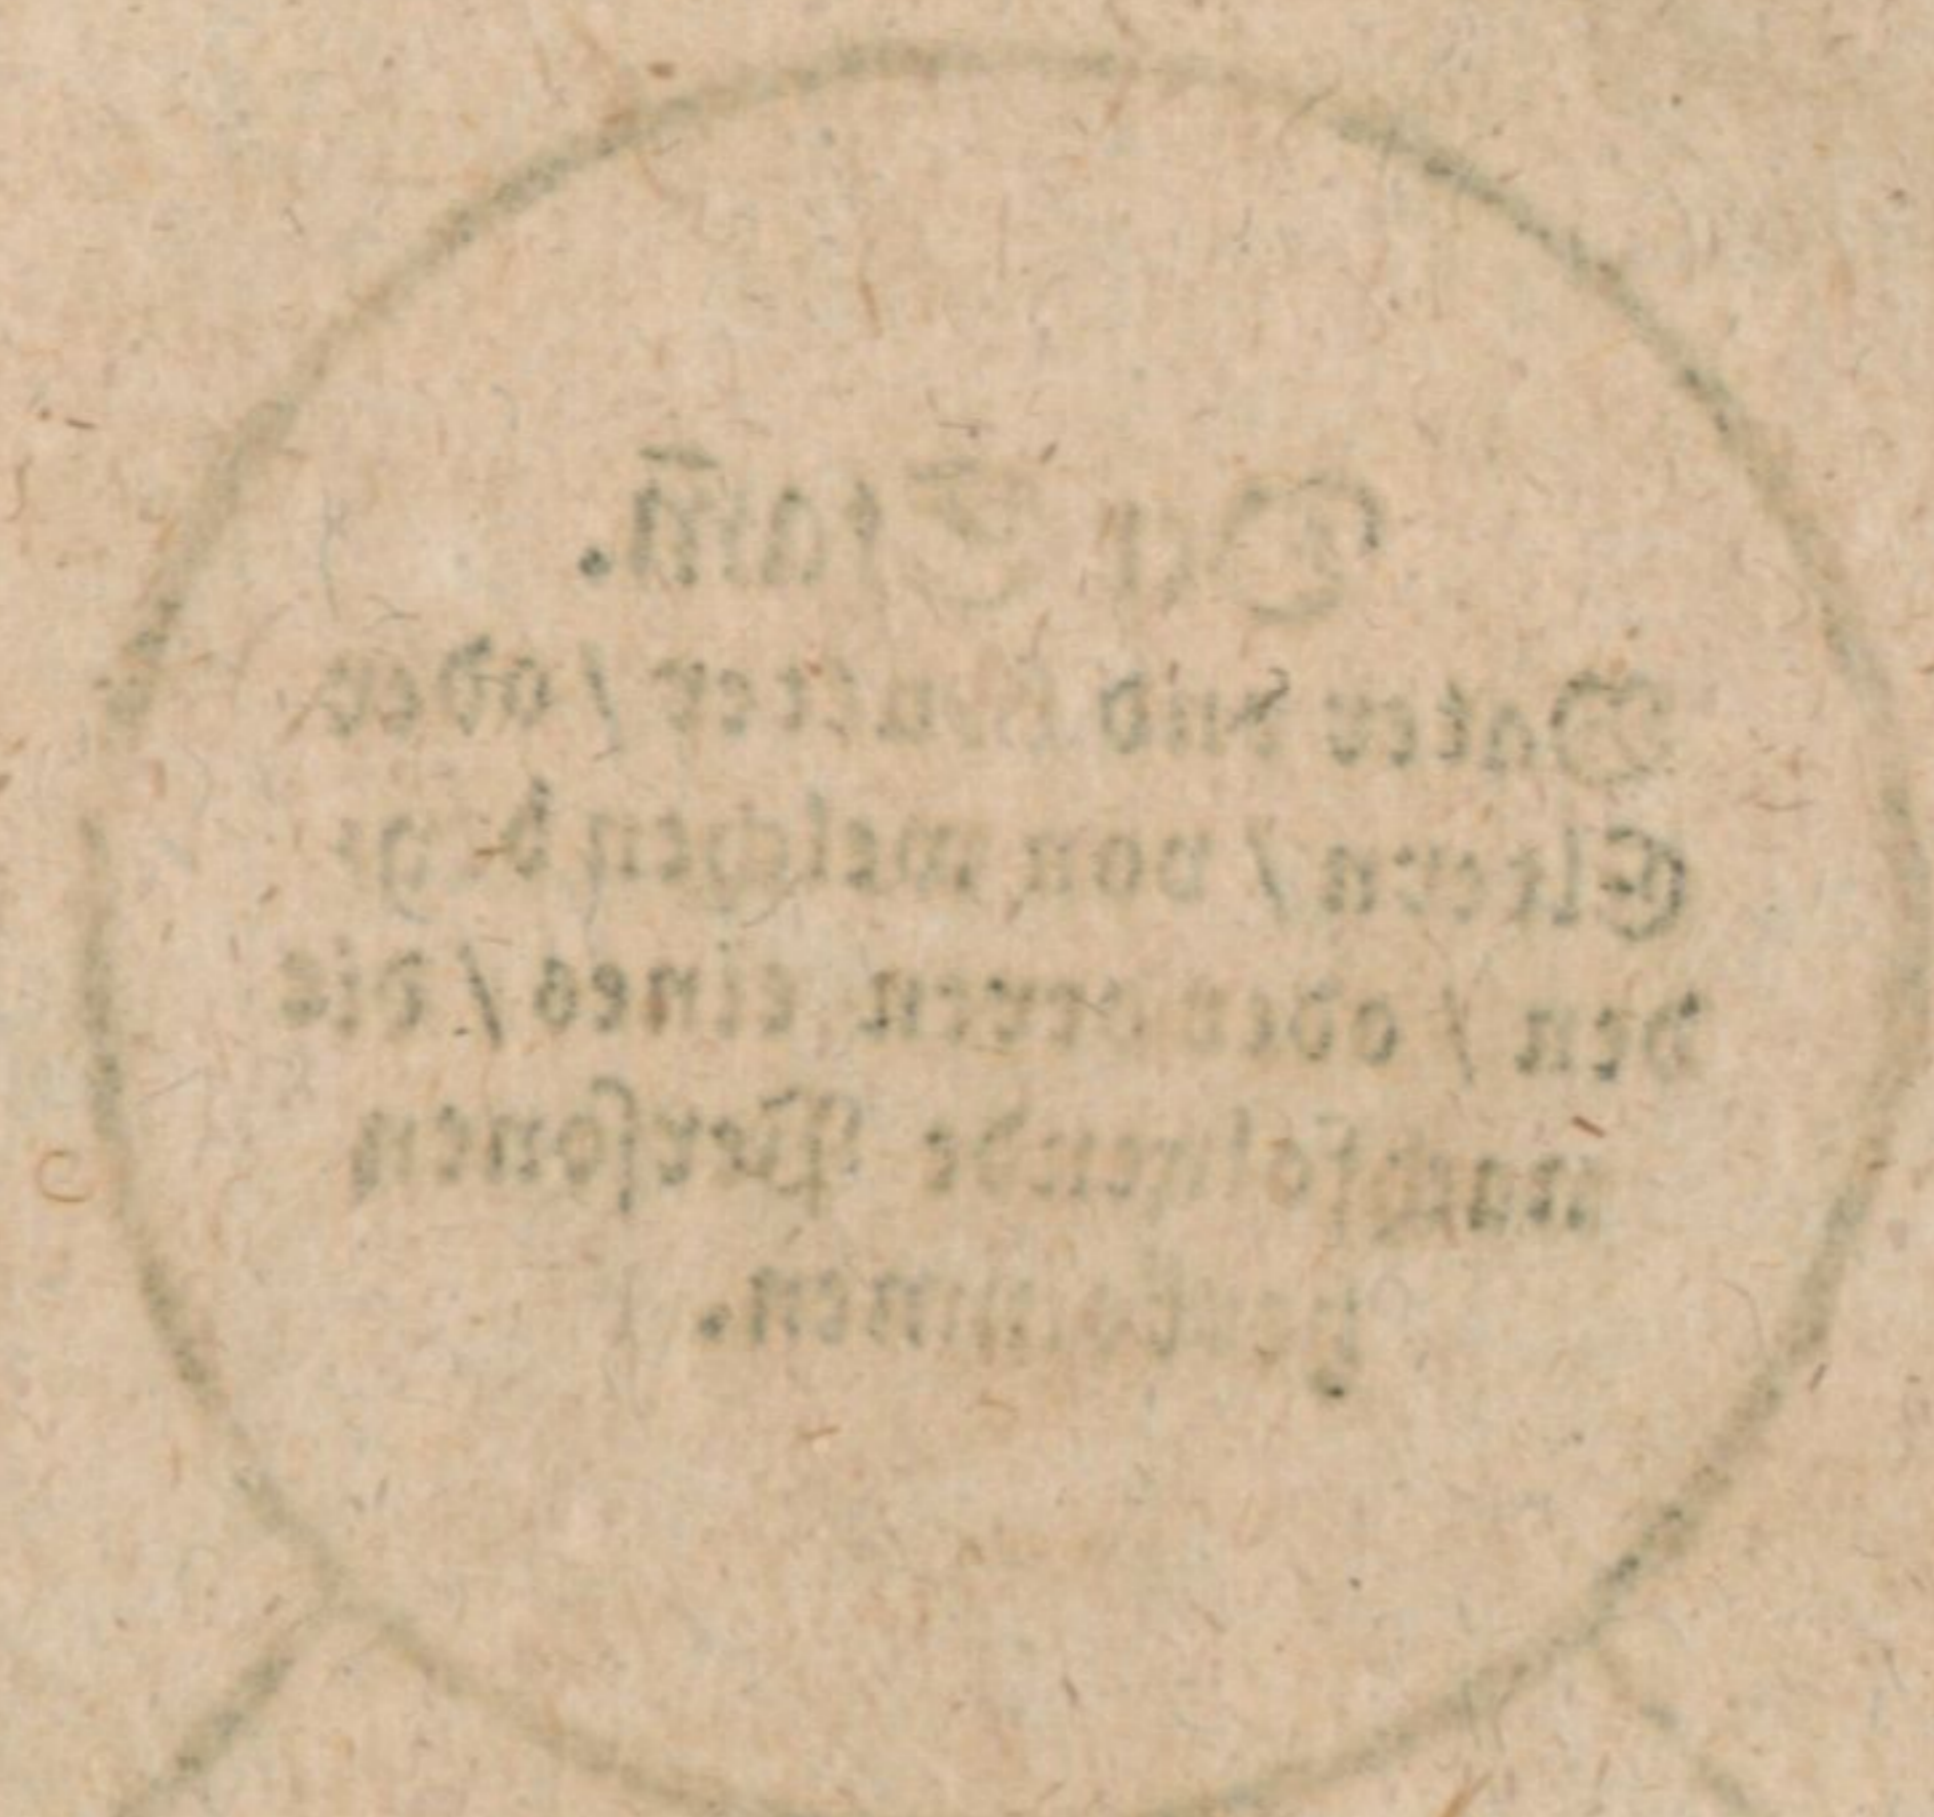 Der Stam̃.
Vatter vnd Muetter / oder
Eltern / von welchen
den / oder deren eines / die
nachfolgende Personen
herkommen.